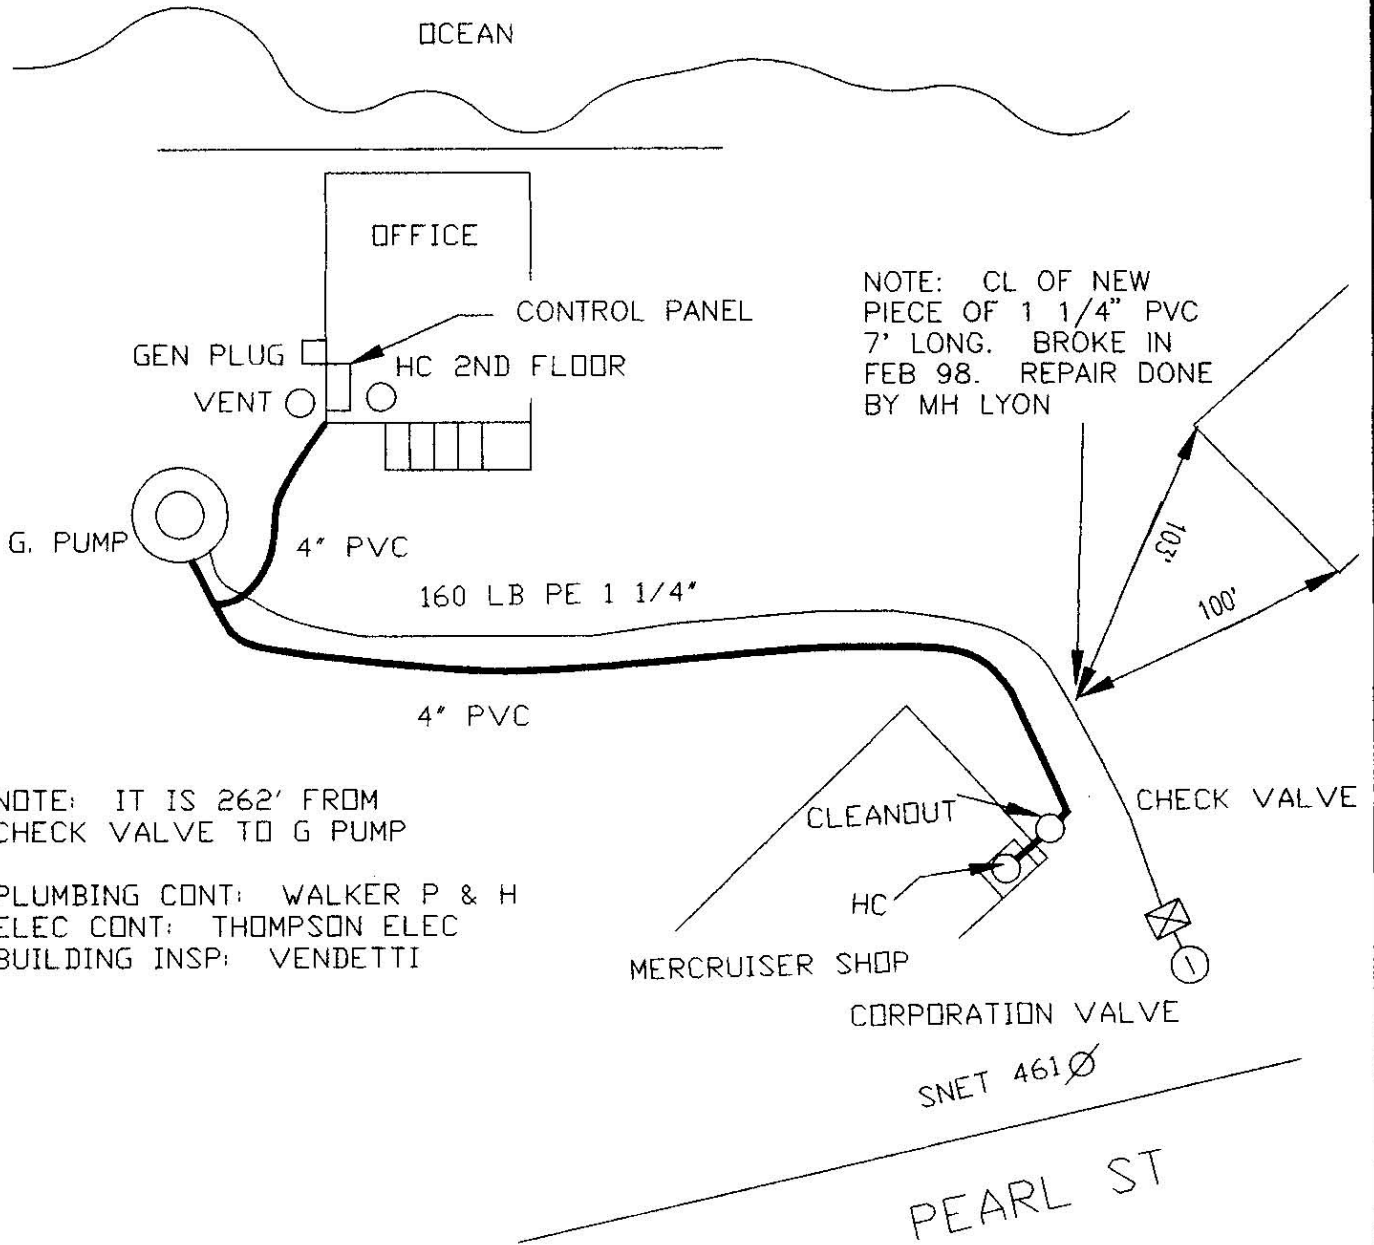 OCEAN
OFFICE
CONTROL PANEL
GEN PLUG
HC 2ND FLOOR
VENT
NOTE: CL OF NEW
PIECE OF 1 1/4" PVC
7' LONG. BROKE IN
FEB 98. REPAIR DONE
BY MH LYON
G. PUMP
4" PVC
103'
160 LB PE 1 1/4"
100'
4" PVC
NOTE: IT IS 262' FROM
CHECK VALVE TO G PUMP
CLEANOUT
CHECK VALVE
PLUMBING CONT: WALKER P & H
ELEC CONT: THOMPSON ELEC
BUILDING INSP: VENDETTI
HC
MERCRUISER SHOP
CORPORATION VALVE
SNET 461Ø
PEARL ST